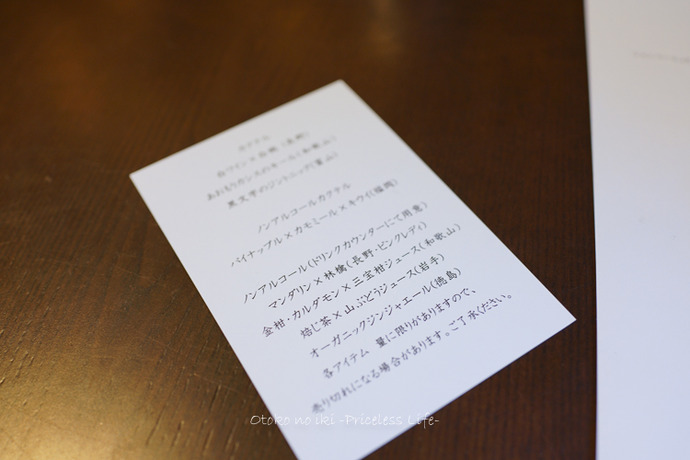 カクテル
白ワイン×
あおもりカシスのキール(和歌山)
黒文字のジントニック(富山)
ノンアルコールカクテル
パイナップル×カモミール×キウイ(福岡)
ノンアルコール(ドリンクカウンターにて用意)
マンダリン×林檎(長野・ピンクレディ)
金柑・カルダモン×三宝柑ジュース(和歌山)
焙じ茶×山ぶどうジュース(岩手)
オーガニックジンジャエール(徳島)
各アイテム 量に限りがありますので、
売り切れになる場合があります。ご了承ください。
Otoko no iki -Priceless Life-